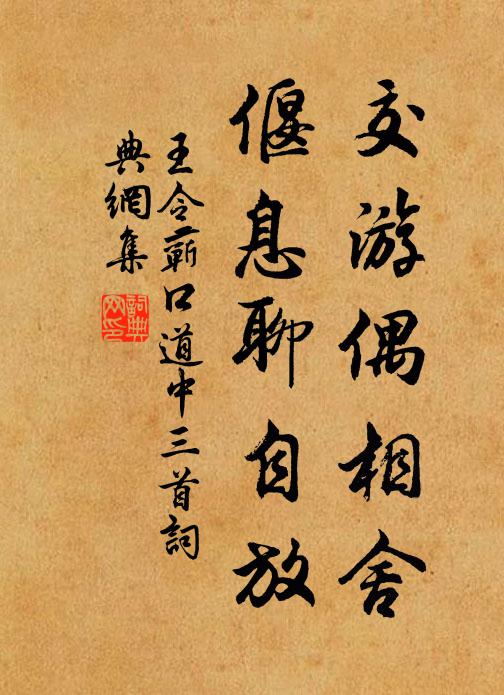 交游偶相舍
偃息聊自放
王令蕲口道中三首詞
典網集
詞典網印